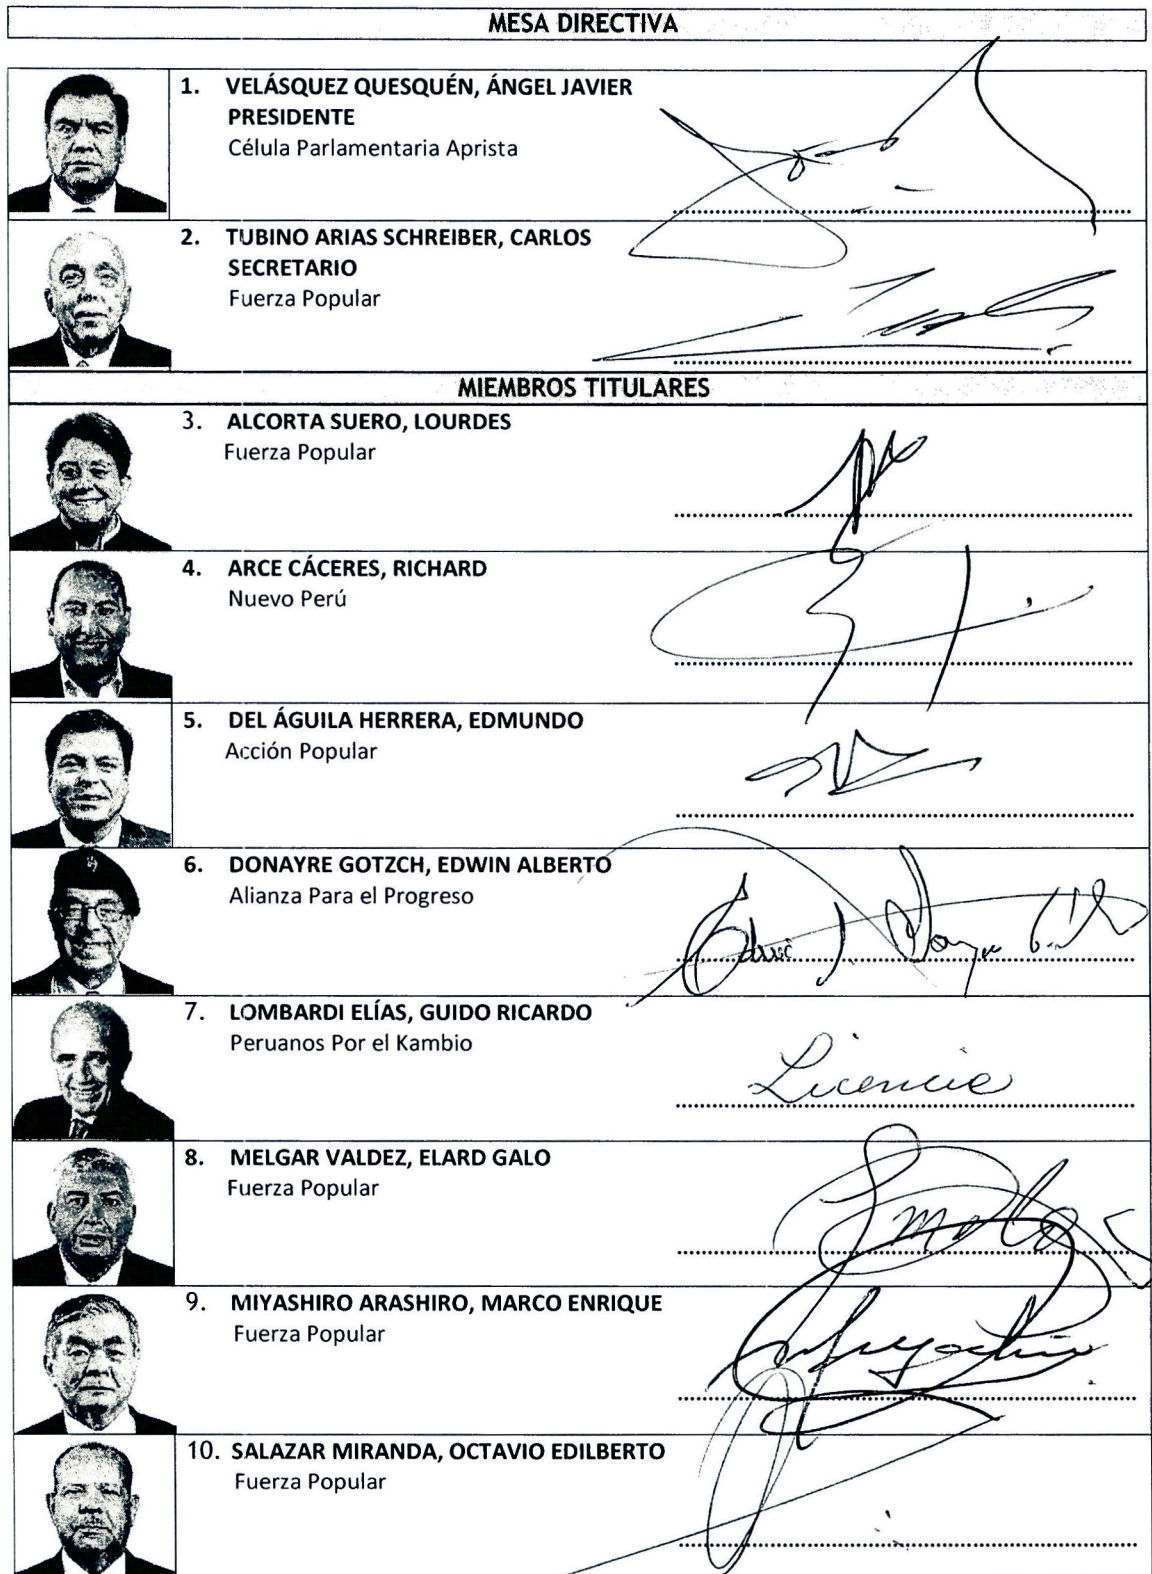 MESA DIRECTIVA
1. VELÁSQUEZ QUESQUÉN, ÁNGEL JAVIER
PRESIDENTE
Célula Parlamentaria Aprista
2. TUBINO ARIAS SCHREIBER, CARLOS
SECRETARIO
Fuerza Popular
MIEMBROS TITULARES
3. ALCORTA SUERO, LOURDES
Fuerza Popular
4. ARCE CÁCERES, RICHARD
Nuevo Perú
5. DEL ÁGUILA HERRERA, EDMUNDO
Acción Popular
6. DONAYRE GOTZCH, EDWIN ALBERTO
Alianza Para el Progreso
7. LOMBARDI ELÍAS, GUIDO RICARDO
Peruanos Por el Kambio
Licencia
8. MELGAR VALDEZ, ELARD GALO
Fuerza Popular
9. MIYASHIRO ARASHIRO, MARCO ENRIQUE
Fuerza Popular
10. SALAZAR MIRANDA, OCTAVIO EDILBERTO
Fuerza Popular